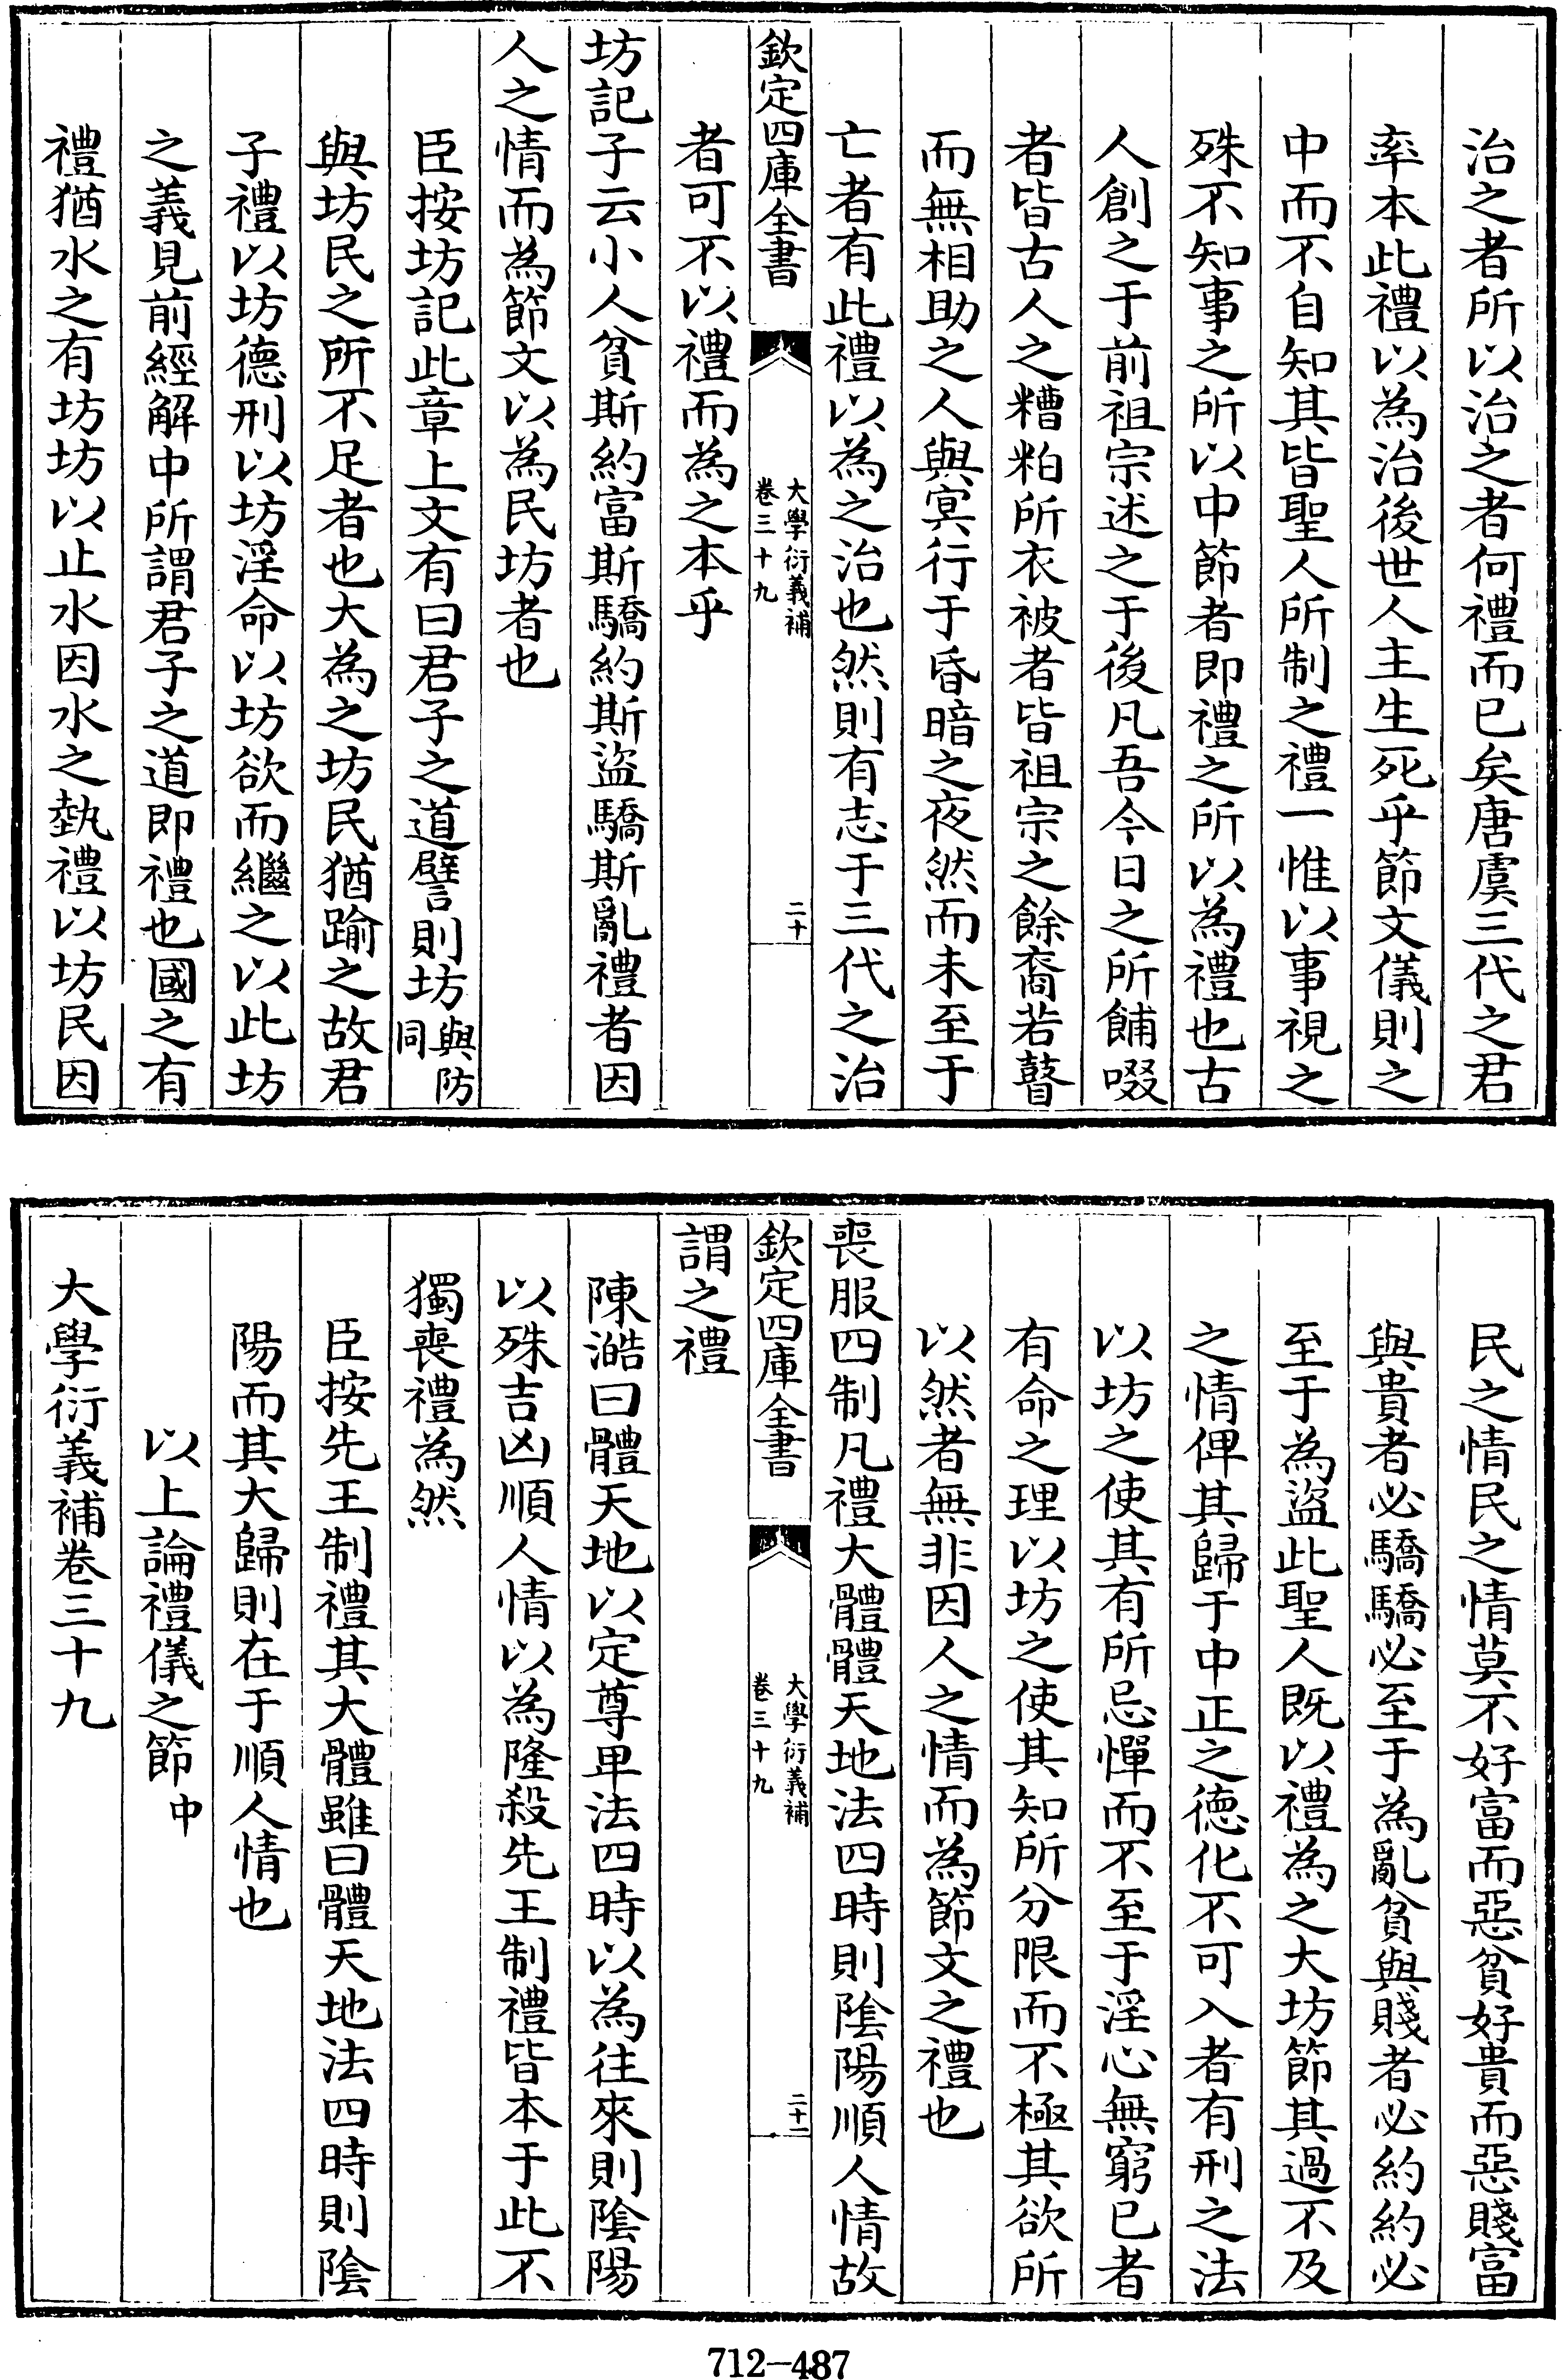 治之者所以治之者何禮而已矣唐虞三代之君
率本此禮以為治後世人主生死乎節文儀則之
中而不自知其皆聖人所制之禮一惟以事視之
殊不知事之所以中節者即禮之所以為禮也古
人創之于前祖宗述之于後凡吾今日之所餔啜
者皆古人之糟粕所衣被者皆祖宗之餘裔若瞽
而無相助之人與冥行于昏暗之夜然而未至于
亡者有此禮以為之治也然則有志于三代之治
欽定四庫全書
大學衍義補
卷三十九
二十
者可不以禮而為之本乎
坊記子云小人貧斯約富斯驕約斯盜驕斯亂禮者因
人之情而為節文以為民坊者也
臣按坊記此章上文有曰君子之道譬則坊與防同
與坊民之所不足者也大為之坊民猶踰之故君
子禮以坊德刑以坊淫命以坊欲而繼之以此坊
之義見前經解中所謂君子之道即禮也國之有
禮猶水之有坊坊以止水因水之埶禮以坊民因
民之情民之情莫不好富而惡貧好貴而惡賤富
與貴者必驕驕必至于為亂貧與賤者必約約必
至于為盜此聖人既以禮為之大坊節其過不及
之情俾其歸于中正之德化不可入者有刑之法
以坊之使其有所忌憚而不至于淫心無窮已者
有命之理以坊之使其知所分限而不極其欲所
以然者無非因人之情而為節文之禮也
喪服四制凡禮大體體天地法四時則陰陽順人情故
欽定四庫全書
大學衍義補
卷三十九
二十一
謂之禮
陳澔曰體天地以定尊卑法四時以為往來則陰陽
以殊吉凶順人情以為隆殺先王制禮皆本于此不
獨喪禮為然
臣按先王制禮其大體雖曰體天地法四時則陰
陽而其大歸則在于順人情也
以上論禮儀之節中
大學衍義補卷三十九
712-487